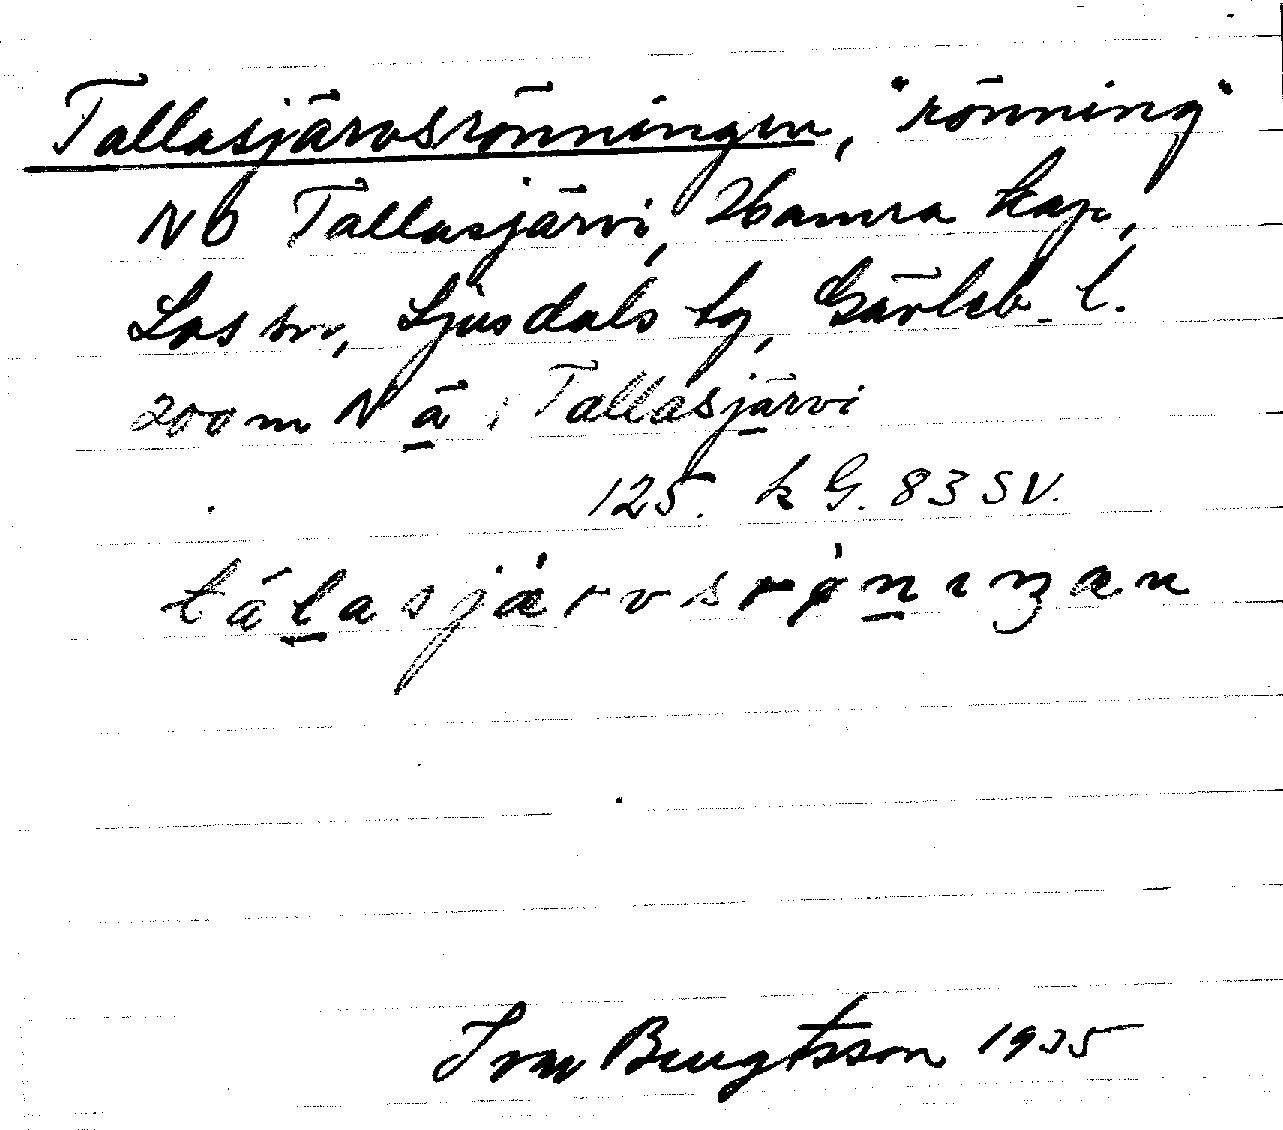 Tallasjärvsrönningen, "rönning"
NO Tallasjärvi, Hamra kap,
Los sn, Ljusdals tg, Gävleb. l.
200 m N ä i Tallasjärvi
125. k G. 83 SV.
tálasjærvsrøniŋan
Ivar Bengtsson 1935